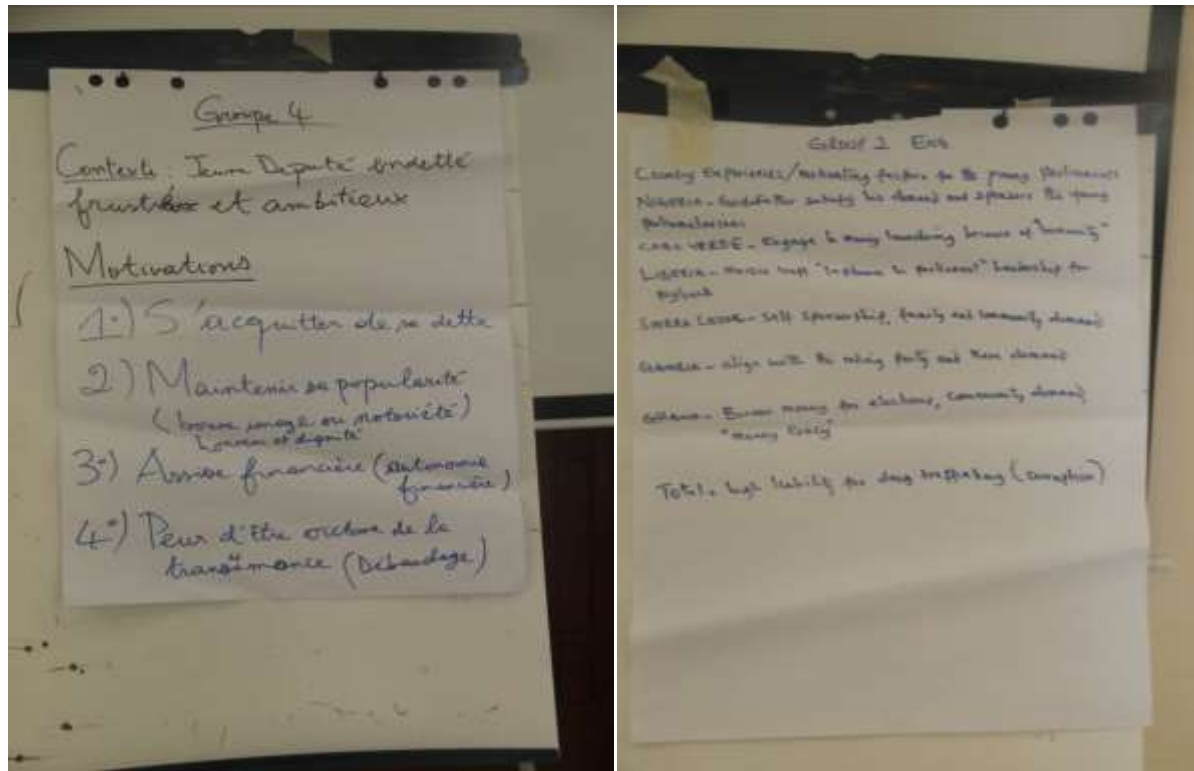 Groupe 4
Contexte : Jeune Député endetté
frustré et ambitieux
Motivations
1.) S'acquitter de sa dette
2) Maintenir sa popularité
(bonne image ou notoriété)
honneur et dignité
3.) Assise financière (autonomie
financière)
4.) Peur d'être victime de la
transhumance (Débauchage)
Group 2 Eng
Country Experiences/motivating factors for the young Parliamentarians
NIGERIA - Godfather satisfy his demand and sponsors the young
Parliamentarian
CABO VERDE - Engage in money laundering because of "immunity"
LIBERIA -
payback
SIERRA LEONE - Self sponsorship, family and community demand
GAMBIA - align with the ruling party and their demand
GHANA - money for elections, community demand
"money"
Total - high liability for drug trafficking (corruption)